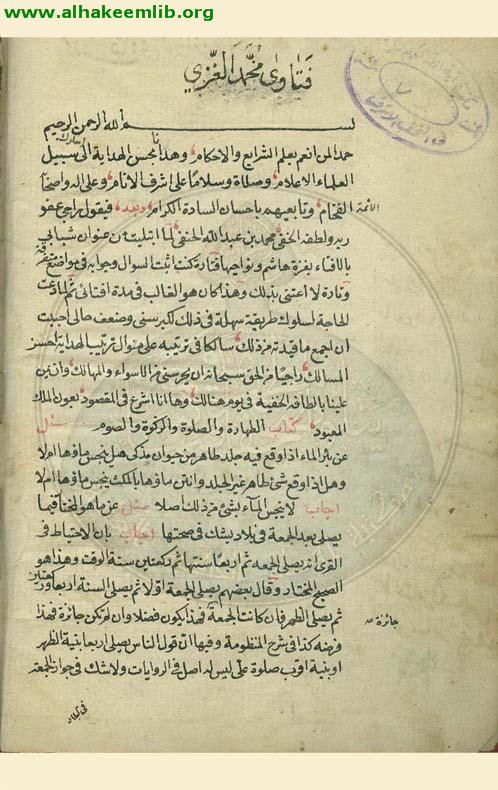 www.alhakeemlib.org
فتاوى محمد الغزي
بسم الله الرحمن الرحيم
حمدا لمن انعم بعلم الشرايع والاحكام وهدانا بمحبس الهداية الى سبيل
العلماء الاعلام وصلاة وسلاما على اشرف الانام وعلى اله واصحابه
الائمة الفخام وتابعيهم باحسان السادة الكرام وبعد فيقول راجي عفو
ربه ولطفه الخفي محمد بن عبد الله الحنفي لما ابتليت من عنوان شبابي
بالافتاء بغزة هاشم ونواحيها فتارة كنت اثبت السوال وجوابه في مواضع متفرقة
وتارة لا اعتنى بذلك وهذا كان هو الغالب في مدة افتائي ثم لما دعت
الحاجة لسلوك طريقة سهلة في ذلك لكبر سني وضعف حالي احببت
ان اجمع ما قيدته من ذلك سالكا في ترتيبه على منوال ترتيب الهداية احسن
المسالك راجيا من الحق سبحانه ان يحرسني من الاسواء والمهالك وان يمن
علينا بالطافه الخفية في يوم هنالك وها انا اشرع في المقصود بعون الملك
المعبود كتاب الطهارة والصلوة والزكوة والصوم سئل
عن بئر الماء اذا وقع فيه جلد طاهر من حيوان مذكى هل ينجس ماؤها ام لا
وهل اذا وقع شئ طاهر غير الجلد وانتن ماؤها بالمكث ينجس ماؤها ام لا
اجاب لا ينجس الماء بشئ من ذلك اصلا سئل عن ما هو المختار فيما
يصلى بعد الجمعة في بلاد يشك في صحتها اجاب بان الاحتياط في
القرى انه يصلى الجمعه ثم اربعا سنتها ثم ركعتين سنة الوقت وهذا هو
الصحيح المختار وقال بعضهم يصلى الجمعة اولا ثم يصلى السنة اربعا وركعتين
ثم يصلى الظهر فان كانت الجمعة جائزة فهذا يكون فضلا وان لم تكن جائزة فهذا
فرضه كذا في شرح المنظومة وفيها ان قول الناس يصلى اربعا بنية الظهر
او بنية اقرب صلوة علي ليس له اصل في الروايات ولا شك في جواز الجمعة
في البلاد